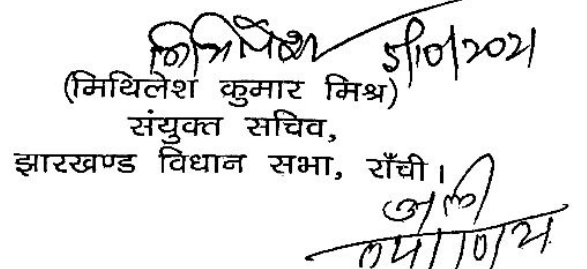 5/10/2021
(मिथिलेश कुमार मिश्र)
संयुक्त सचिव,
झारखण्ड विधान सभा, राँची।